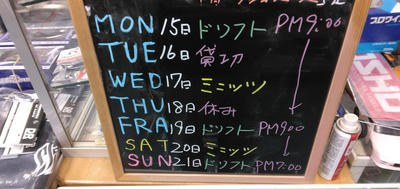 MON 15日 ドリフト PM9:00
TUE 16日 貸切
WED 17日 ミニッツ
THU 18日 休み
FRA 19日 ドリフト PM9:00
SAT 20日 ミニッツ
SUN 21日 ドリフト PM7:00